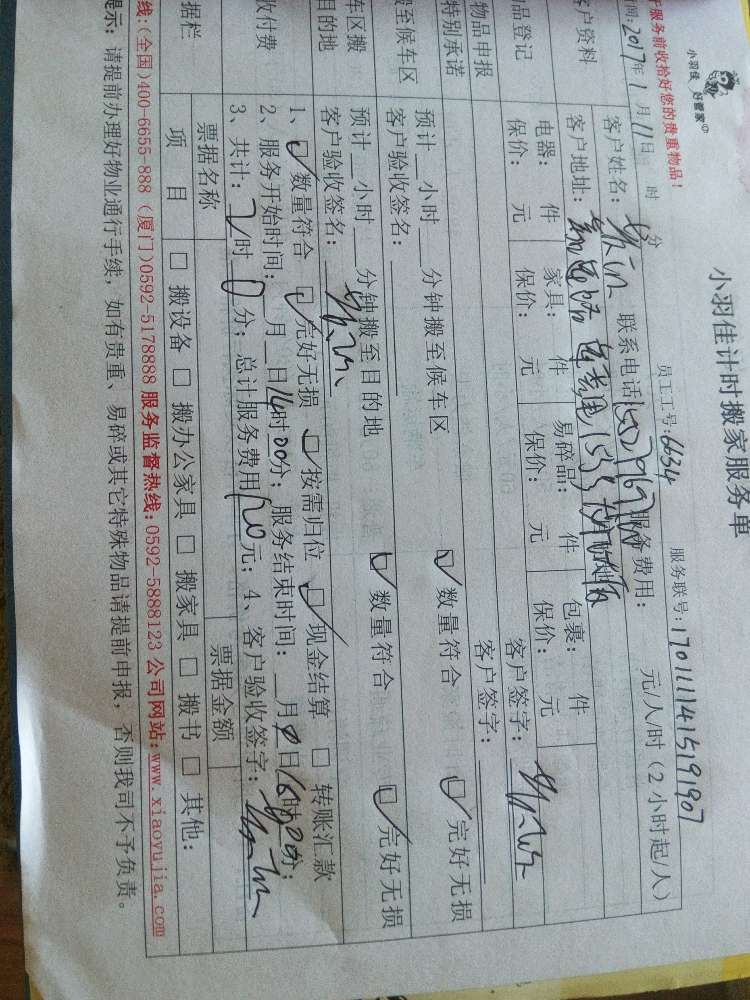 小羽佳 好管家
小羽佳计时搬家服务单
服务前收拾好您的贵重物品！
员工工号：6634
服务联号：1701111415191907
间：2017年1月11日 时 分
客户资料
客户姓名：
联系电话
服务费用： 元/人/时（2小时起/人）
客户地址：
品登记
电器： 件 家具： 件 易碎品： 件 包裹： 件
保价： 元 保价： 元 保价： 元 保价： 元
物品申报
客户签字：
特别承诺
客户签字：
搬至候车区
预计 小时 分钟搬至候车区
数量符合 完好无损
客户验收签名：
车区搬
目的地
预计 小时 分钟搬至目的地
数量符合 完好无损
客户验收签名：
收付费
1、 数量符合 完好无损 按需归位 现金结算 转账汇款
2、服务开始时间： 月 日14时00分；服务结束时间： 月 日16时00分；
3、共计：2时0分；总计服务费用 元；4、客户验收签字：
据栏
票据名称 票据金额
项 目 搬设备 搬办公家具 搬家具 搬书 其他：
线:(全国)400-6655-888 (厦门)0592-5178888 服务监督热线:0592-5888123 公司网站:www.xiaoyujia.com
提示：请提前办理好物业通行手续，如有贵重、易碎或其它特殊物品请提前申报，否则我司不予负责。